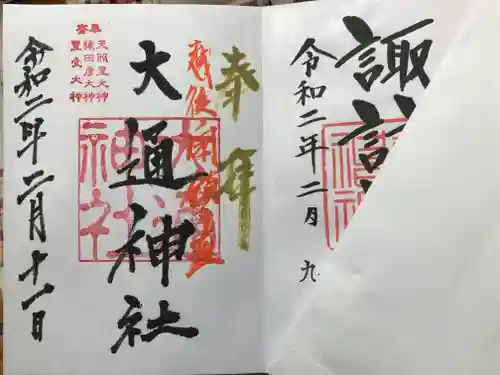 諏訪
令和二年二月九
奉拝
越後
大道神社
奉斎
天照皇大神
猿田彦大神
豊受大神
令和二年二月十一日